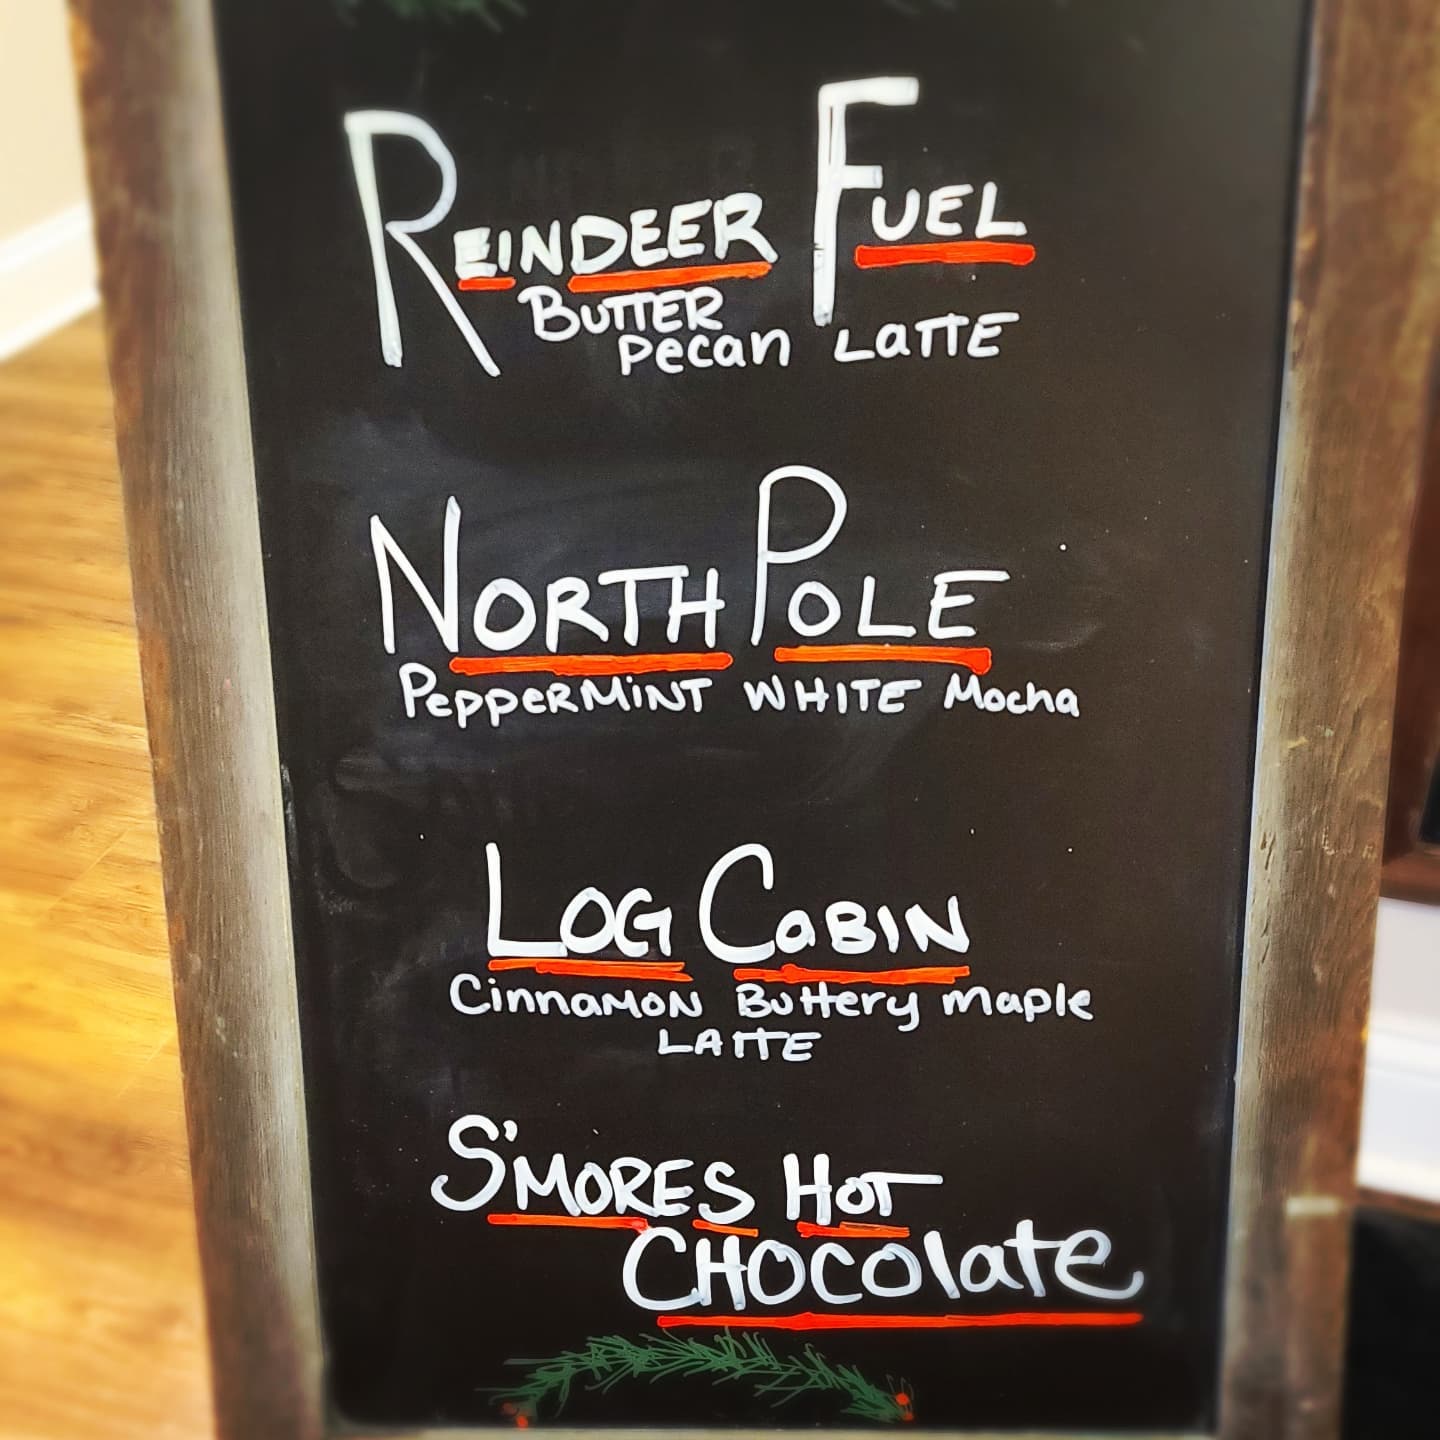 REINDEER FUEL
BUTTER
Pecan LaTTE
NORTH POLE
PeppeRMiNT WHITE Mocha
LOG CaBIN
CinnaMON Buttery maple
LATTE
S'MORES HoT
CHOColate